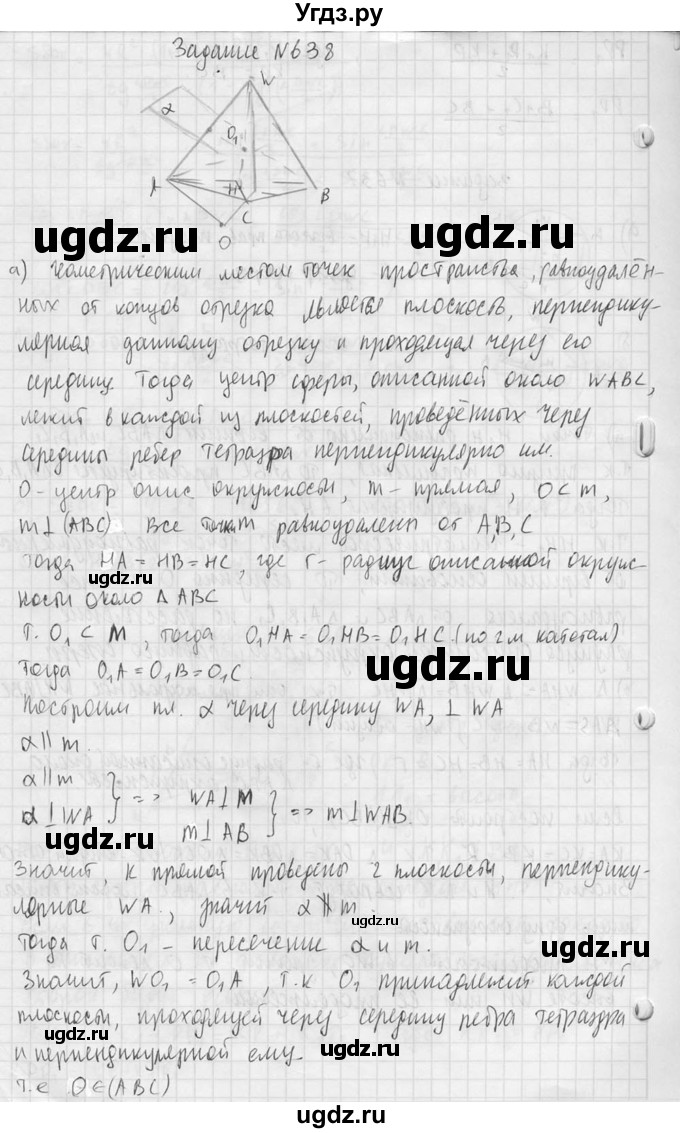 Угдз.ру
Задание №638
W
α
O₁
A
H
C
B
O
ugdz.ru ugdz.ru
а) Геометрическим местом точек пространства, равноудалён-
ных от концов отрезка является плоскость, перпендику-
лярная данному отрезку и проходящая через его
середину Тогда центр сферы, описанной около WABC,
лежит в каждой из плоскостей, проведённых через
середины ребер тетраэдра перпендикулярно им.
O - центр опис окружности, m - прямая, O ⊂ m,
m ⊥ (ABC) Все точки m равноудален от A, B, C
ugdz.ru
Тогда HA = HB = HC, где r - радиус описанной окруж-
ности около Δ ABC
Т. O₁ ⊂ M, тогда O₁HA = O₁HB = O₁HC (по 2м катетам)
ugdz.ru
Тогда O₁A = O₁B = O₁C
Построим пл. α через середину WA, ⊥ WA
α || m.
α || m
α ⊥ WA } => WA ⊥ M
m ⊥ AB } => m ⊥ WAB.
ugdz.ru
Значит, к прямой проведены 2 плоскости, перпендику-
лярные WA, значит α ∦ m.
ugdz.ru
Тогда т. O₁ - пересечение α и m.
Значит, WO₁ = O₁A, т.к O₁ принадлежит каждой
плоскости, проходящей через середину ребра тетраэдра
и перпендикулярной ему.
ugdz.ru
т.е O ∈ (ABC)
ugdz.ru